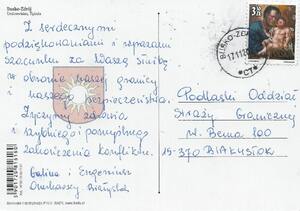 Busko-Zdrój
Z serdecznymi
podziękowaniami i wyrazami
szacunku za Waszą służbę
w obronie naszej granicy
i naszego bezpieczeństwa.
Życzymy zdrowia
i szybkiego i pomyślnego
zakończenia konfliktu.
Galina i Eugeniusz
Białystok
BUSKO-ZDRÓJ
Podlaski Oddział
Straży Granicznej
w. Bema 100
15-370 BIAŁYSTOK